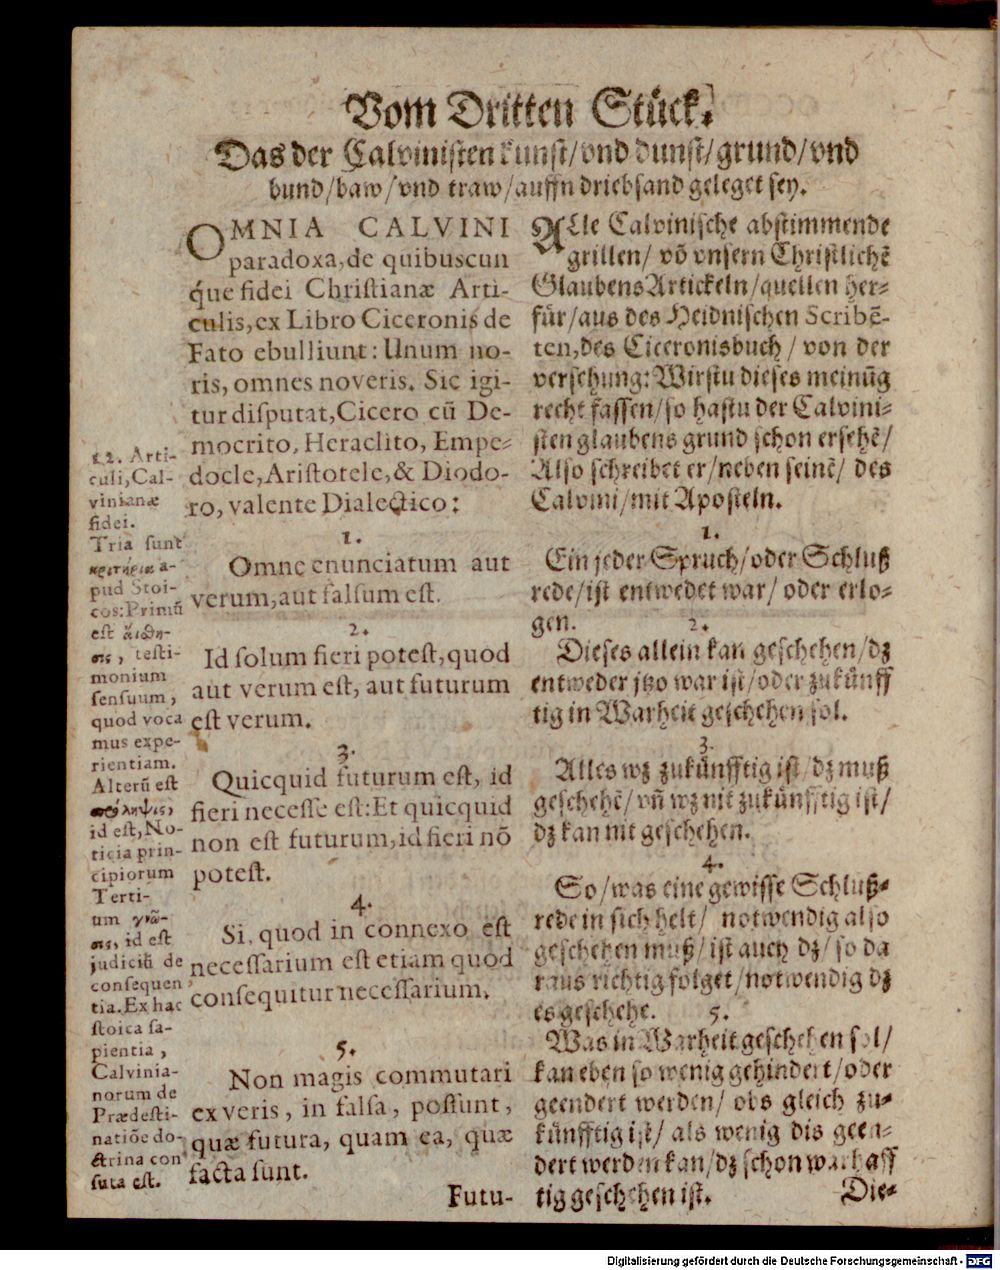 Vom Dritten Stück.
Das der Calvinisten kunst/vnd dunst/grund/vnd
bund/baw/vnd traw/auffn driebsand geleget sey.
OMNIA CALVINI
paradoxa, de quibuscun
q́ue fidei Christianæ Arti-
culis, ex Libro Ciceronis de
Fato ebulliunt: Unum no-
ris, omnes noveris. Sic igi-
tur disputat, Cicero cū De-
mocrito, Heraclito, Empe-
docle, Aristotele, & Diodo-
ro, valente Dialectico:
1.
Omne enunciatum aut
verum, aut falsum est.
2.
Id solum fieri potest, quod
aut verum est, aut futurum
est verum.
3.
Quicquid futurum est, id
fieri necesse est: Et quicquid
non est futurum, id fieri nō
potest.
4.
Si, quod in connexo est
necessarium est etiam quod
consequitur necessarium.
5.
Non magis commutari
ex veris, in falsa, possunt,
quæ futura, quam ea, quæ
facta sunt.
Futu-
12. Arti-
culi, Cal-
vinianæ
fidei.
Tria sunt
κριτήρια a-
pud Stoi-
cos: Primū
est ἄισθη-
σις, testi-
monium
sensuum,
quod voca
mus expe-
rientiam.
Alterū est
πρόληψις,
id est, No-
ticia prin-
cipiorum
Terti-
um γνῶ-
σις, id est
judiciū de
consequen
tia. Ex hac
stoica sa-
pientia,
Calvinia-
norum de
Prædesti-
natiōe do-
ctrina con
suta est.
ALle Calvinische abstimmende
grillen/ võ vnsern Christlichē
Glaubens Artickeln/quellen her-
für/aus des Heidnischen Scribē-
ten, des Ciceronisbuch / von der
versehung: Wirstu dieses meinūg
recht fassen/so hastu der Calvini-
sten glaubens grund schon ersehē/
Also schreibet er/neben seinē/ des
Calvini/mit Aposteln.
1.
Ein jeder Spruch/oder Schluß
rede/ist entwedet war/ oder erlo-
gen.
2.
Dieses allein kan geschehen/dz
entweder jtzo war ist/oder zukünff
tig in Warheit geschehen sol.
3.
Alles wz zukünfftig ist/dz muß
geschehē/vñ wz nit zukünfftig ist/
dz kan nit geschehen.
4.
So/was eine gewisse Schluß-
rede in sich helt/ notwendig also
geschehen muß/ist auch dz/so da
raus richtig folget/notwendig dz
es geschehe.
5.
Was in Warheit geschehen sol/
kan eben so wenig gehindert/oder
geendert werden/ obs gleich zu-
künfftig ist/ als wenig dis geen-
dert werden kan/dz schon warhaff
tig geschehen ist.
Die-
Digitalisierung gefördert durch die Deutsche Forschungsgemeinschaft - DFG